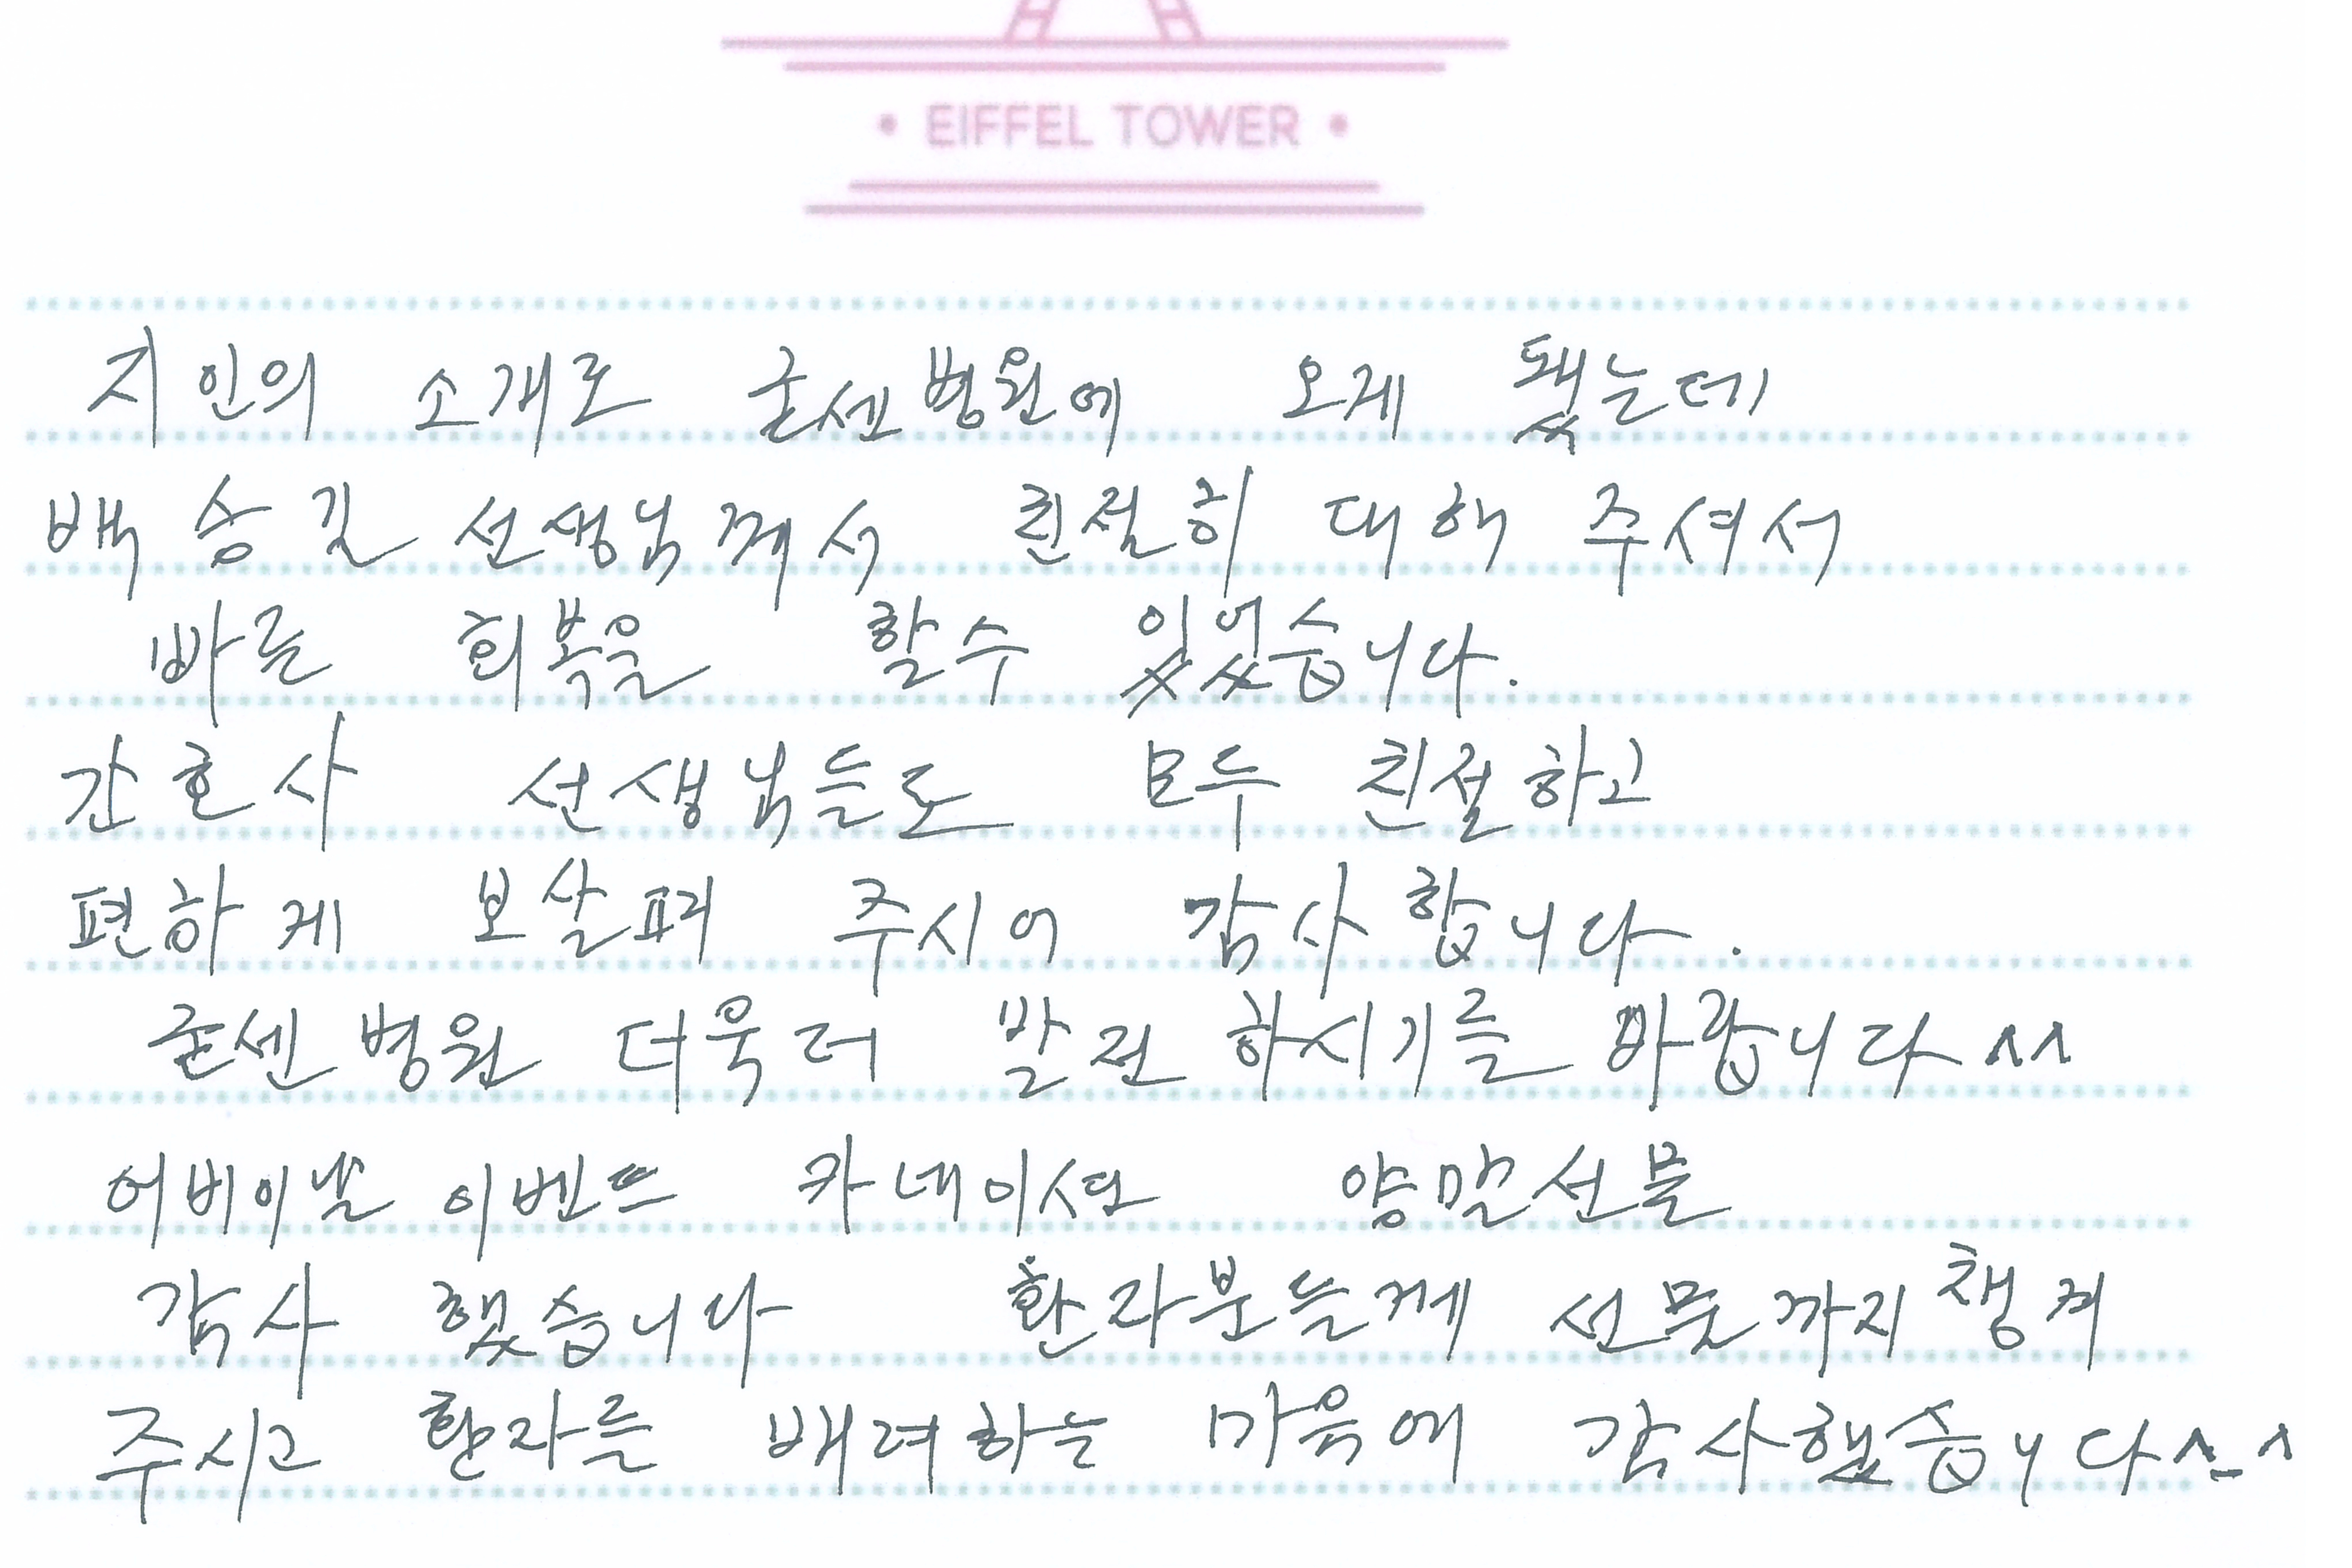 • EIFFEL TOWER •
지인의 소개로 굳센병원에 오게 됐는데
백승길 선생님께서 친절히 대해 주셔서
빠른 회복을 할수 있었습니다.
간호사 선생님들도 모두 친절하고
편하게 보살펴 주시어 감사합니다.
굳센병원 더욱더 발전하시기를 바랍니다 ^^
어버이날 이벤트 카네이션 양말선물
감사 했습니다 환자분들께 선물까지 챙겨
주시고 환자를 배려하는 마음에 감사했습니다^-^